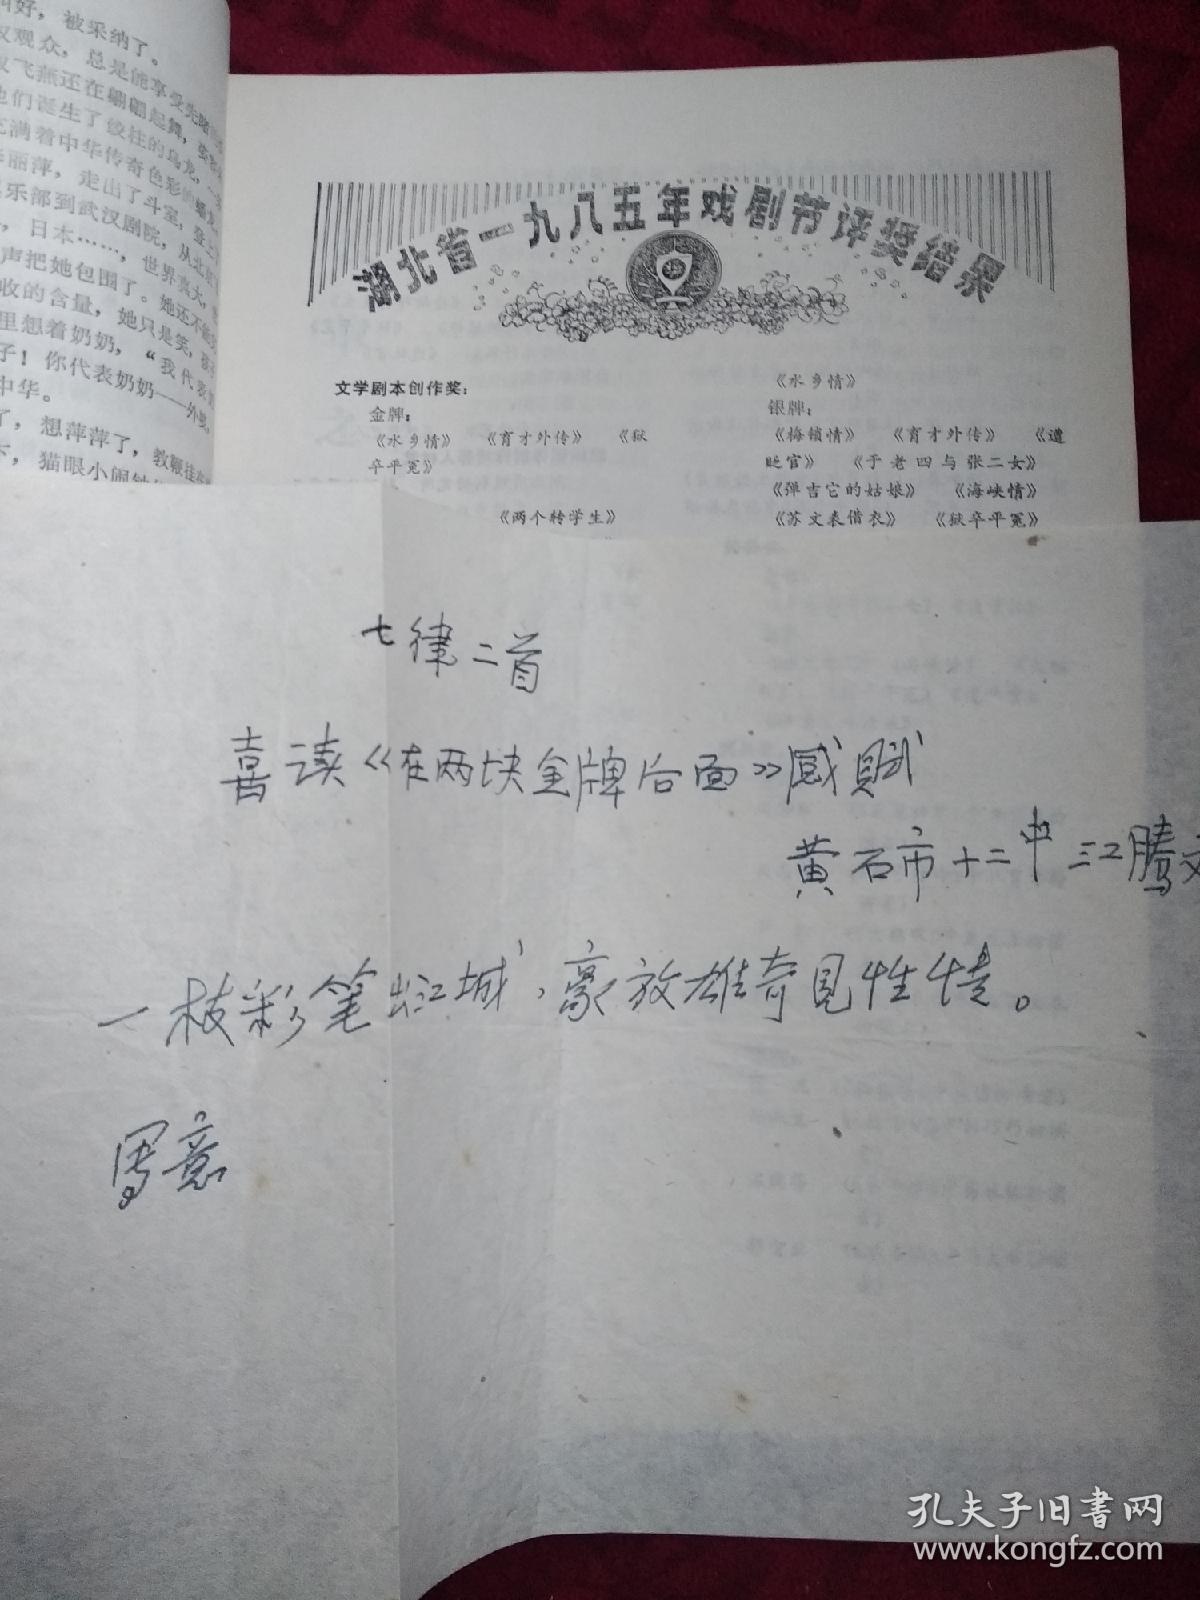 叫好，被采纳了。
汉观众，总是能享受先睹
双飞燕还在翩翩起舞，
他们诞生了绞柱的乌龙，
充满着中华传奇色彩的
丽萍，走出了斗室，登上
乐部到武汉剧院，从北
，日本……，世界真大，
声把她包围了。她还不能
收的含量，她只是笑，
里想着奶奶，“我代表
子！你代表奶奶——外婆，
中华。
了，想萍萍了，教鞭挂在
，猫眼小闹钟
湖北省一九八五年戏剧节评奖结果
文学剧本创作奖：
金牌：
《水乡情》 《育才外传》 《狱
卒平冤》
《两个转学生》
《水乡情》
银牌：
《梅锁情》 《育才外传》 《遭
贬官》 《于老四与张二女》
《弹吉它的姑娘》 《海峡情》
《苏文表借衣》 《狱卒平冤》
七律二首
喜读《在两块金牌后面》感赋
黄石市十二中 江腾文
一枝彩笔出江城，豪放雄奇见性情。
写意
孔夫子旧书网
www.kongfz.com